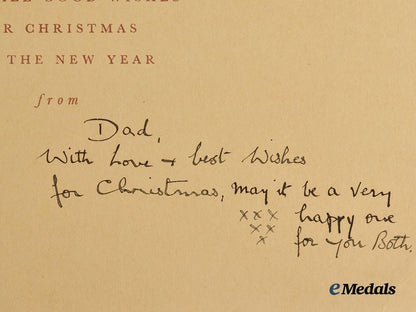 ALL GOOD WISHES
R CHRISTMAS
THE NEW YEAR
from
Dad,
With Love + best Wishes
for Christmas, may it be a very
x x x happy one
x x
x for you Both.
eMedals